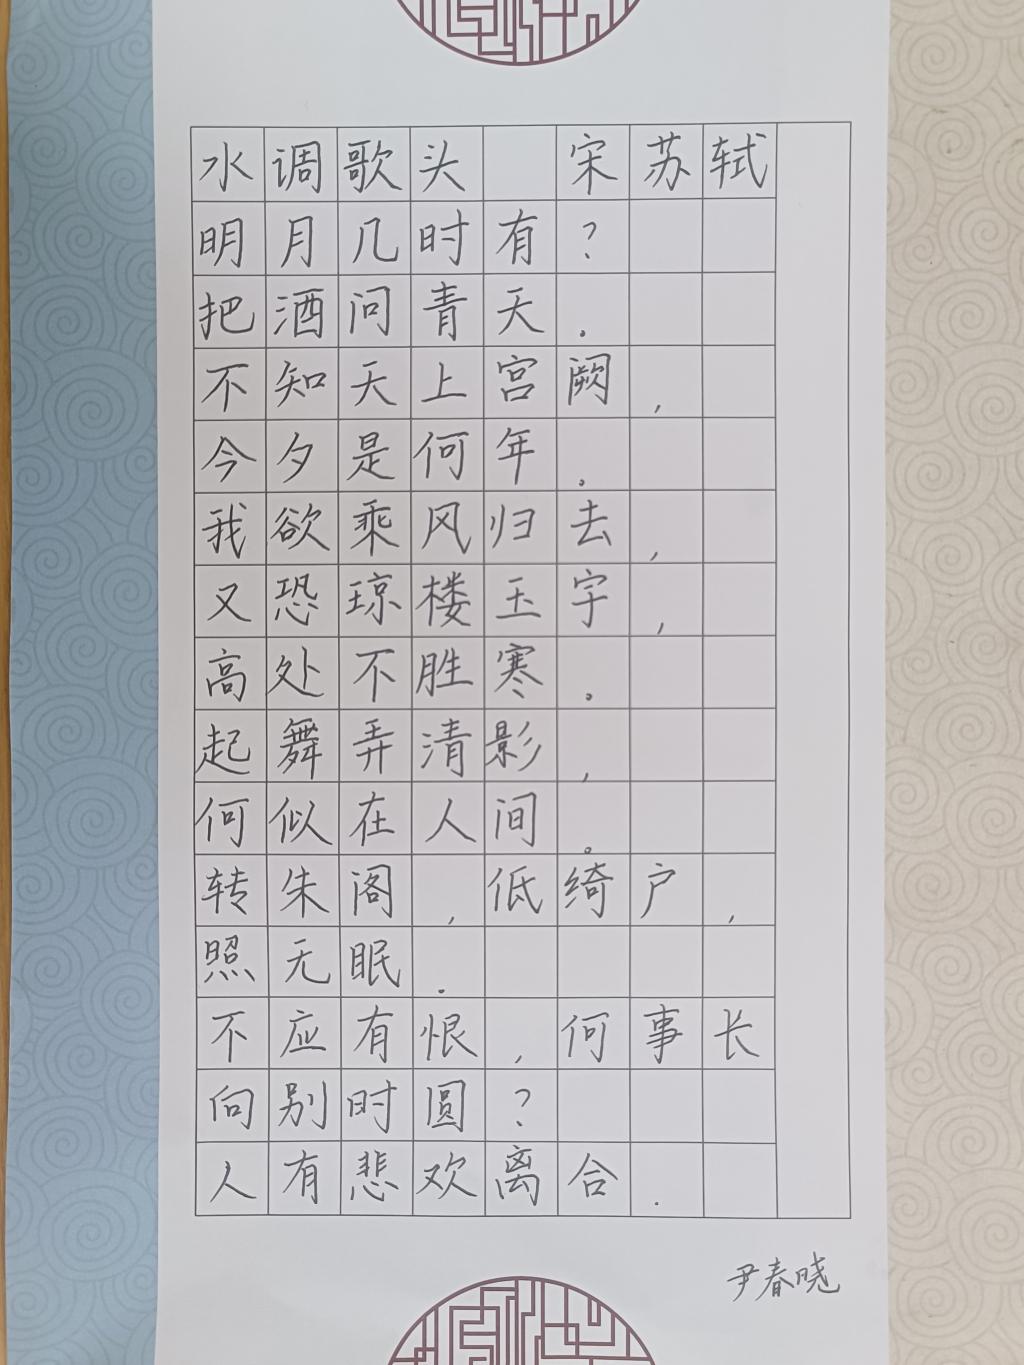 水调歌头 宋苏轼
明月几时有?
把酒问青天.
不知天上宫阙,
今夕是何年。
我欲乘风归去,
又恐琼楼玉宇,
高处不胜寒。
起舞弄清影,
何似在人间。
转朱阁,低绮户,
照无眠.
不应有恨,何事长
向别时圆?
人有悲欢离合.
尹春晓